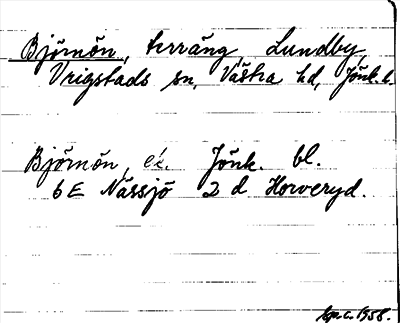 Björnön, terräng, Lundby,
Vrigstads sn, Västra hd, Jönk. l.
Björnön, ek. Jönk. bl.
6E Nässjö 2 d Horveryd.
1958.